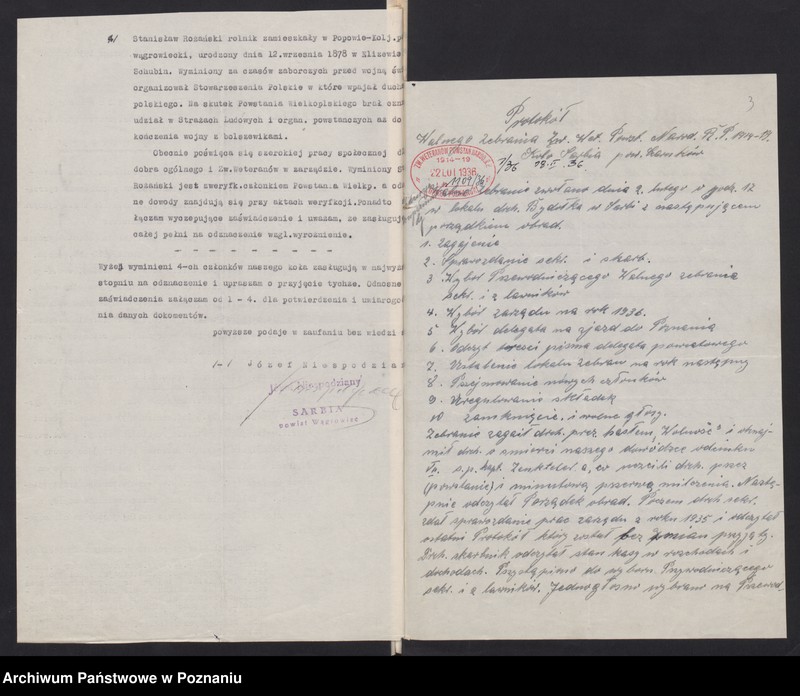 4/ Stanisław Rożański rolnik zamieszkały w Popowie-Kolj.p
wągrowiecki, urodzony dnia 12.września 1878 w Elizewie
Schubin. Wyminiony za czasów zaborczych przed wojną św
organizował Stowarzeszenia Polskie w które wpajał ducha
polskiego. Na skutek Powstania Wielkopolskiego brał czn
udział w Strażach Ludowych i organ. powstanczych aż do
kończenia wojny z bolszewikami.
Obecnie poświęca się szerokiej pracy społecznej d
dobra ogólnego i Zw.Weteranów w zarządzie. Wyminiony
Rożański jest zweryfk.członkiem Powstan.a Wielkp. a od
ne dowody znajdują się przy aktach weryfkcji.Ponadto
łączam wyczepujące zaświadczenie i uważam, ze zasługuj
całej pełni na odznaczenie wzgl.wyroznienie.
- - - - - - - - - - -
Wyżej wyminieni 4-ch członków naszego koła zasługują w najwyż
stopniu na odznaczenie i upraszam o przyjęcie tychze. Odnosne
zaświadczenia załączna od 1 - 4. dla potwierdzenia i umiarogo
nia danych dokomentów.
powyzsze podaje w zaufaniu bez wiedzi
1-1 Józef Niespodzian
SARBIA
powiat Wągrowiec
3
Protokół
Walnego Zebrania Zw. Wet. Powst. Narod. R.P. 1914-19.
Koło Sarbia pow.
1/36 18.II.36
ZW. WETERANÓW POWSTAŃ NARODOW.
1914-19
22 LUT. 1936
1109/36
Zebranie zwołano dnia 2. lutego o godz. 12
w lokalu drh. Bydołka w Sarbi z następującem
porządkiem obrad.
1. Zagajenie
2. Sprawozdanie sekr. i skarb.
3 Wybór Przewodniczącego Walnego zebrania
sekr. i 2 ławników
4. Wybór zarządu na rok 1936.
5 Wybór delegata na zjazd do Poznania
6. Odczyt treści pisma delegata powiatowego
7. Ustalenie lokalu zebran na rok następny
8. Przejmowanie nowych członków
9. Uregulowanie składek
10 zamknięcie. i wolne głosy.
Zebranie zagaił drh. prez. hasłem „Wolność" i oznaj-
mił drh. o smierci naszego dowódzce odcinku
ś.p. kpt. Zenktelera, co uczcili drh. przez
(powstanie) i minutową przerwą milczenia. Nastę-
pnie odczytał Porządek obrad. Poczem drh. sekr.
zdał sprawozdanie prac zarządu z roku 1935 i odczytał
ostatni Protokół który został bez zmian przyjęty.
Drh. skarbnik odczytał stan kasy w rozchodach i
dochodach. Przystąpiono do wyboru Przewodniczącego
sekr. i 2 ławników. Jednogłośno wybrano na Przewod.
Archiwum Państwowe w Poznaniu